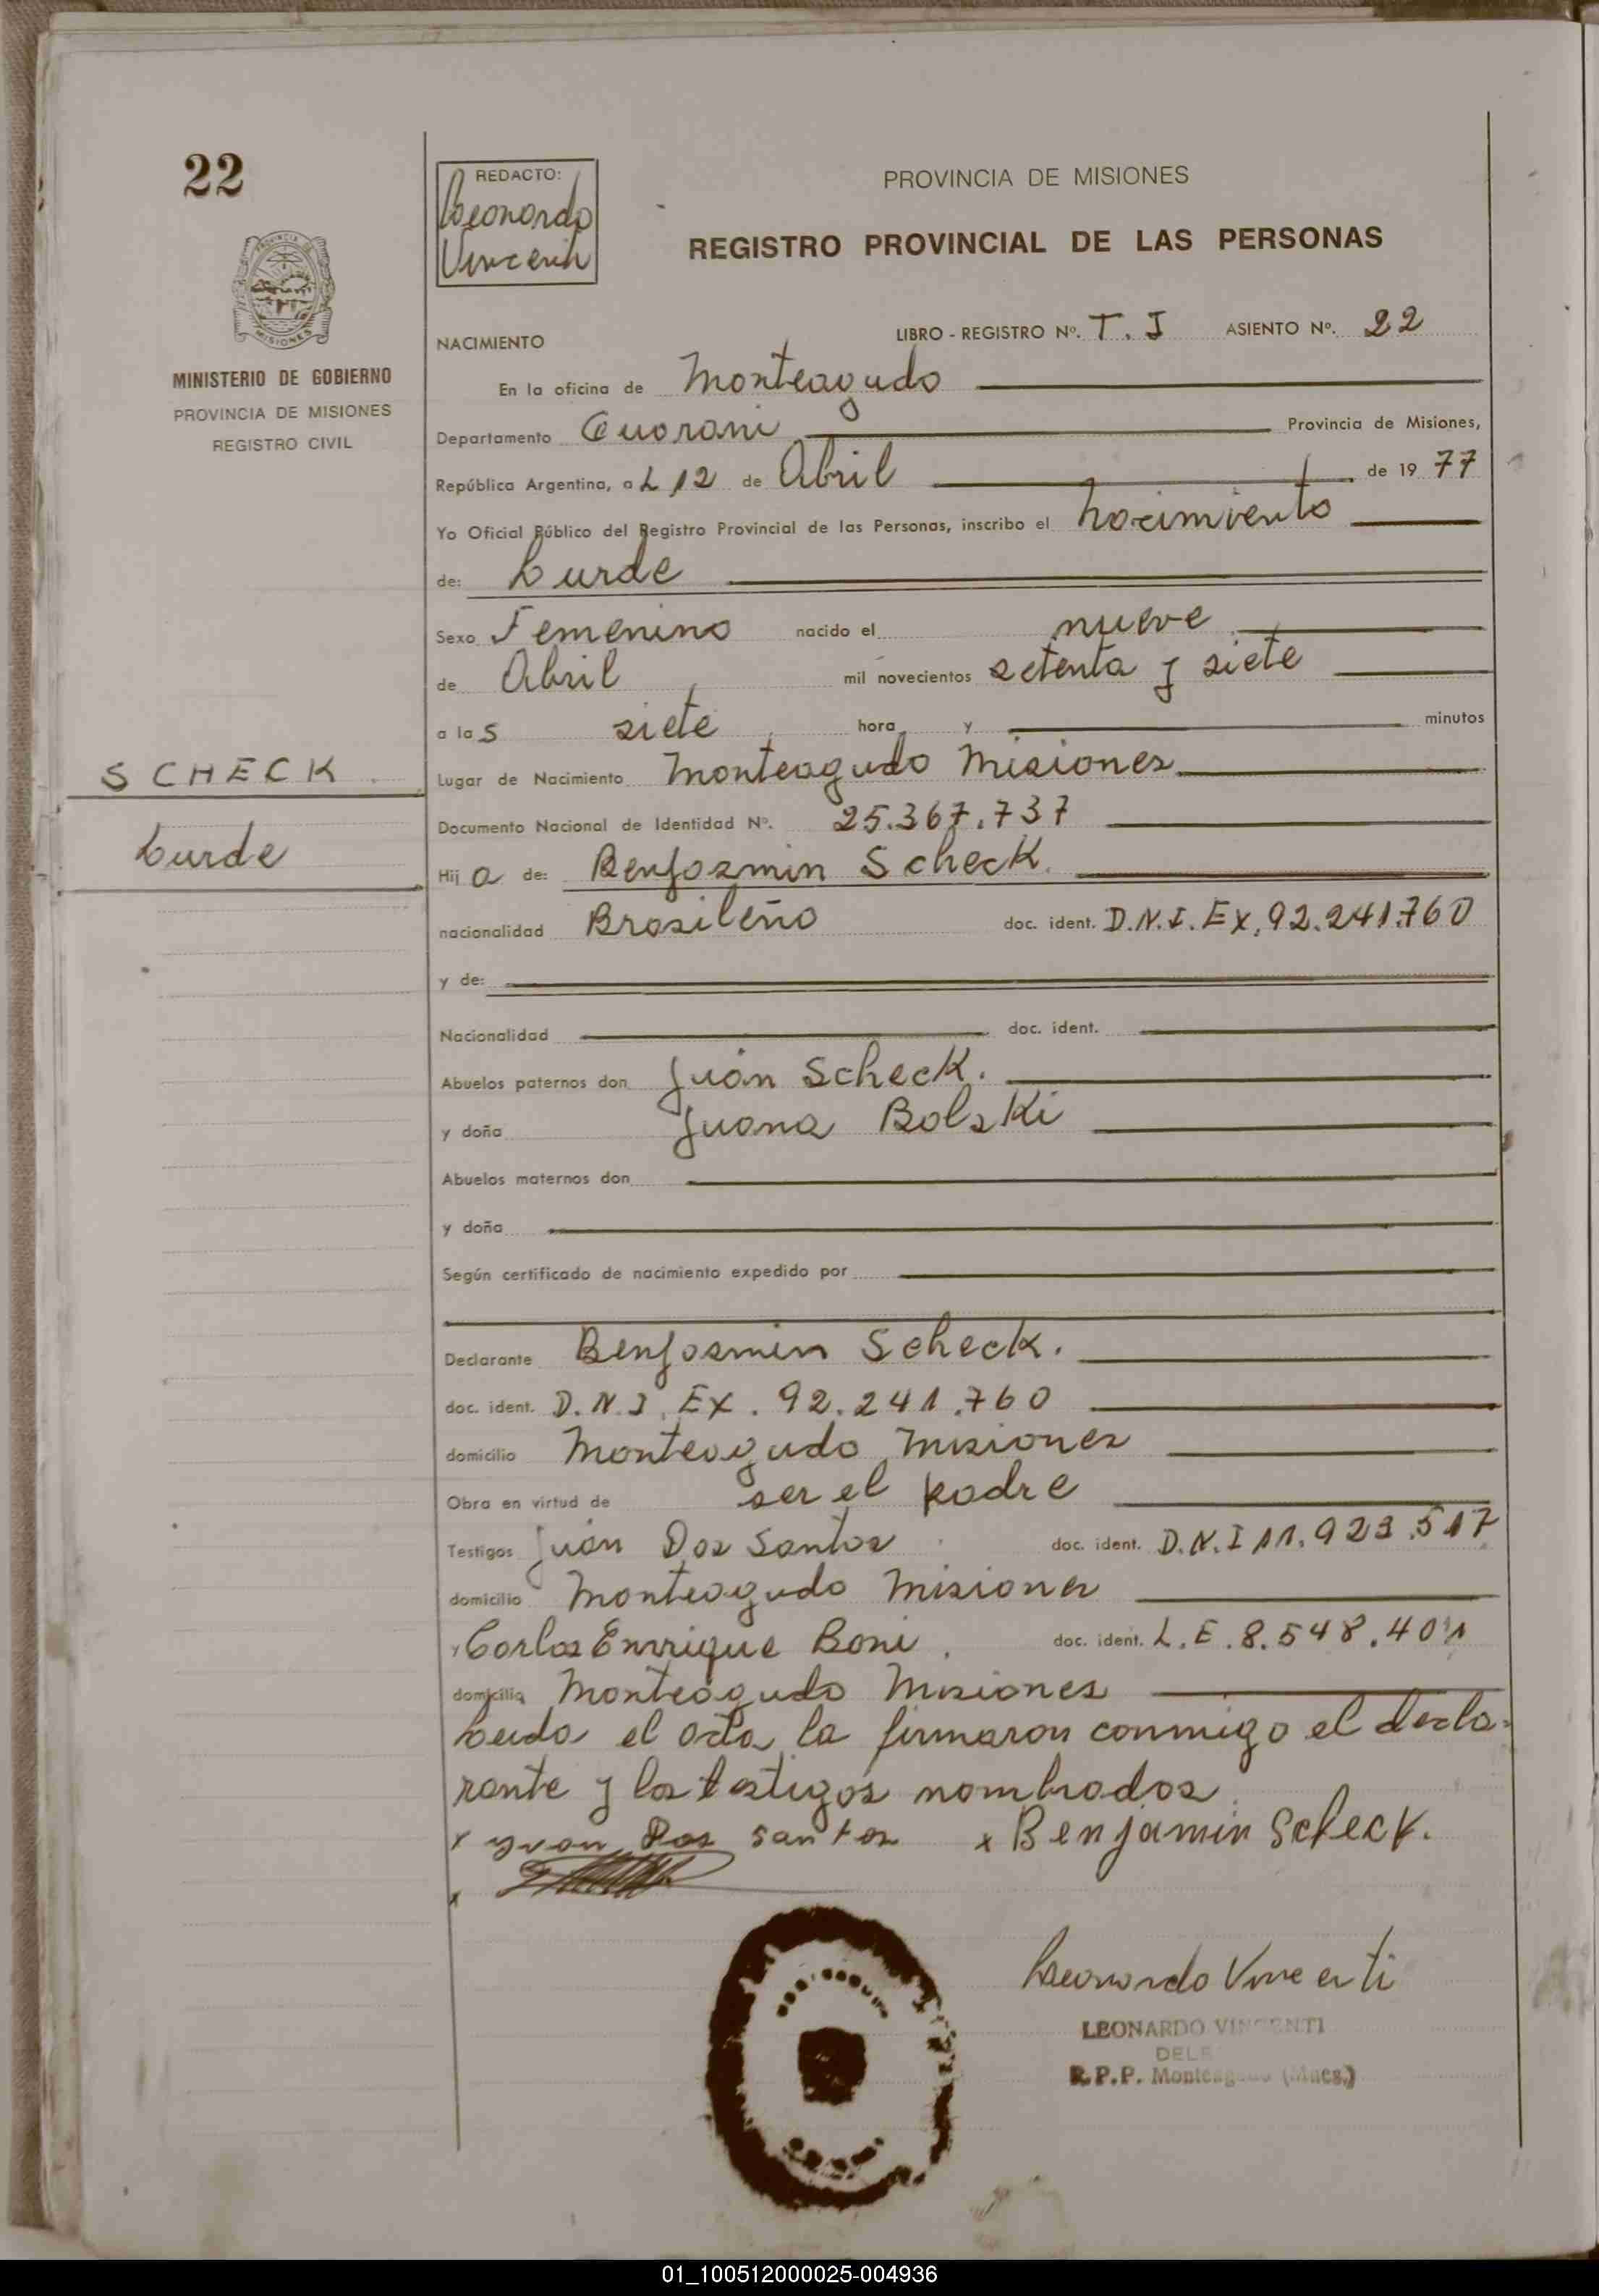 22
PROVINCIA DE MISIONES
MINISTERIO DE GOBIERNO
PROVINCIA DE MISIONES
REGISTRO CIVIL
SCHECK
Lurde
REDACTO:
Leonardo
Vincenti
PROVINCIA DE MISIONES
REGISTRO PROVINCIAL DE LAS PERSONAS
NACIMIENTO LIBRO - REGISTRO Nº. T. I ASIENTO Nº. 22
En la oficina de Monteagudo
Departamento Guarani Provincia de Misiones,
República Argentina, a L 12 de Abril de 19 77
Yo Oficial Público del Registro Provincial de las Personas, inscribo el nacimiento
de: Lurde
Sexo Femenino nacido el nueve
de Abril mil novecientos setenta y siete
a las siete hora y minutos
Lugar de Nacimiento Monteagudo Misiones
Documento Nacional de Identidad Nº. 25.367.737
Hij a de: Benjasmin Scheck.
nacionalidad Brasileño doc. ident. D.N.I. Ex. 92.241.760
y de:
Nacionalidad doc. ident.
Abuelos paternos don Juan Scheck.
y doña Juana Bolski
Abuelos maternos don
y doña
Según certificado de nacimiento expedido por
Declarante Benjasmin Scheck.
doc. ident. D.N.I. Ex. 92.241.760
domicilio Monteagudo Misiones
Obra en virtud de ser el padre
Testigos Juan Dos Santos doc. ident. D.N.I 11.923.517
domicilio Monteagudo Misiones
y Carlos Enrrique Boni. doc. ident. L.E. 8.548.401
domicilio Monteagudo Misiones
Leida el acta la firmaron conmigo el decla-
rante y los testigos nombrados
x Jvan Dos santos x Benjamin Scheck.
x
Leonardo Vincenti
LEONARDO VINCENTI
R.P.P. Monteagudo (Mnes.)
01_100512000025-004936